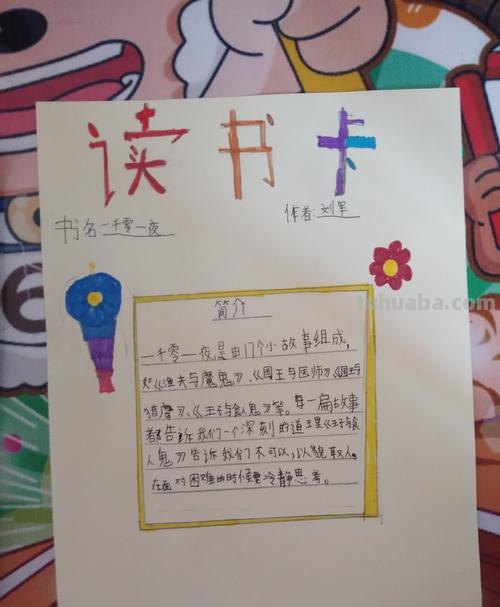 读书卡
书名:一千零一夜
作者:刘军
tuhuaba.com
简介
一千零一夜是由17个小故事组成,
如《渔夫与魔鬼》、《国王与医师》《国王与
猎鹰》、《王子与食人鬼》等。每一扁故事
都告诉我们一个深刻的道里《王子与食
人鬼》告诉我们不可以,以貌取人。
在面对困难的时候要冷静思考。